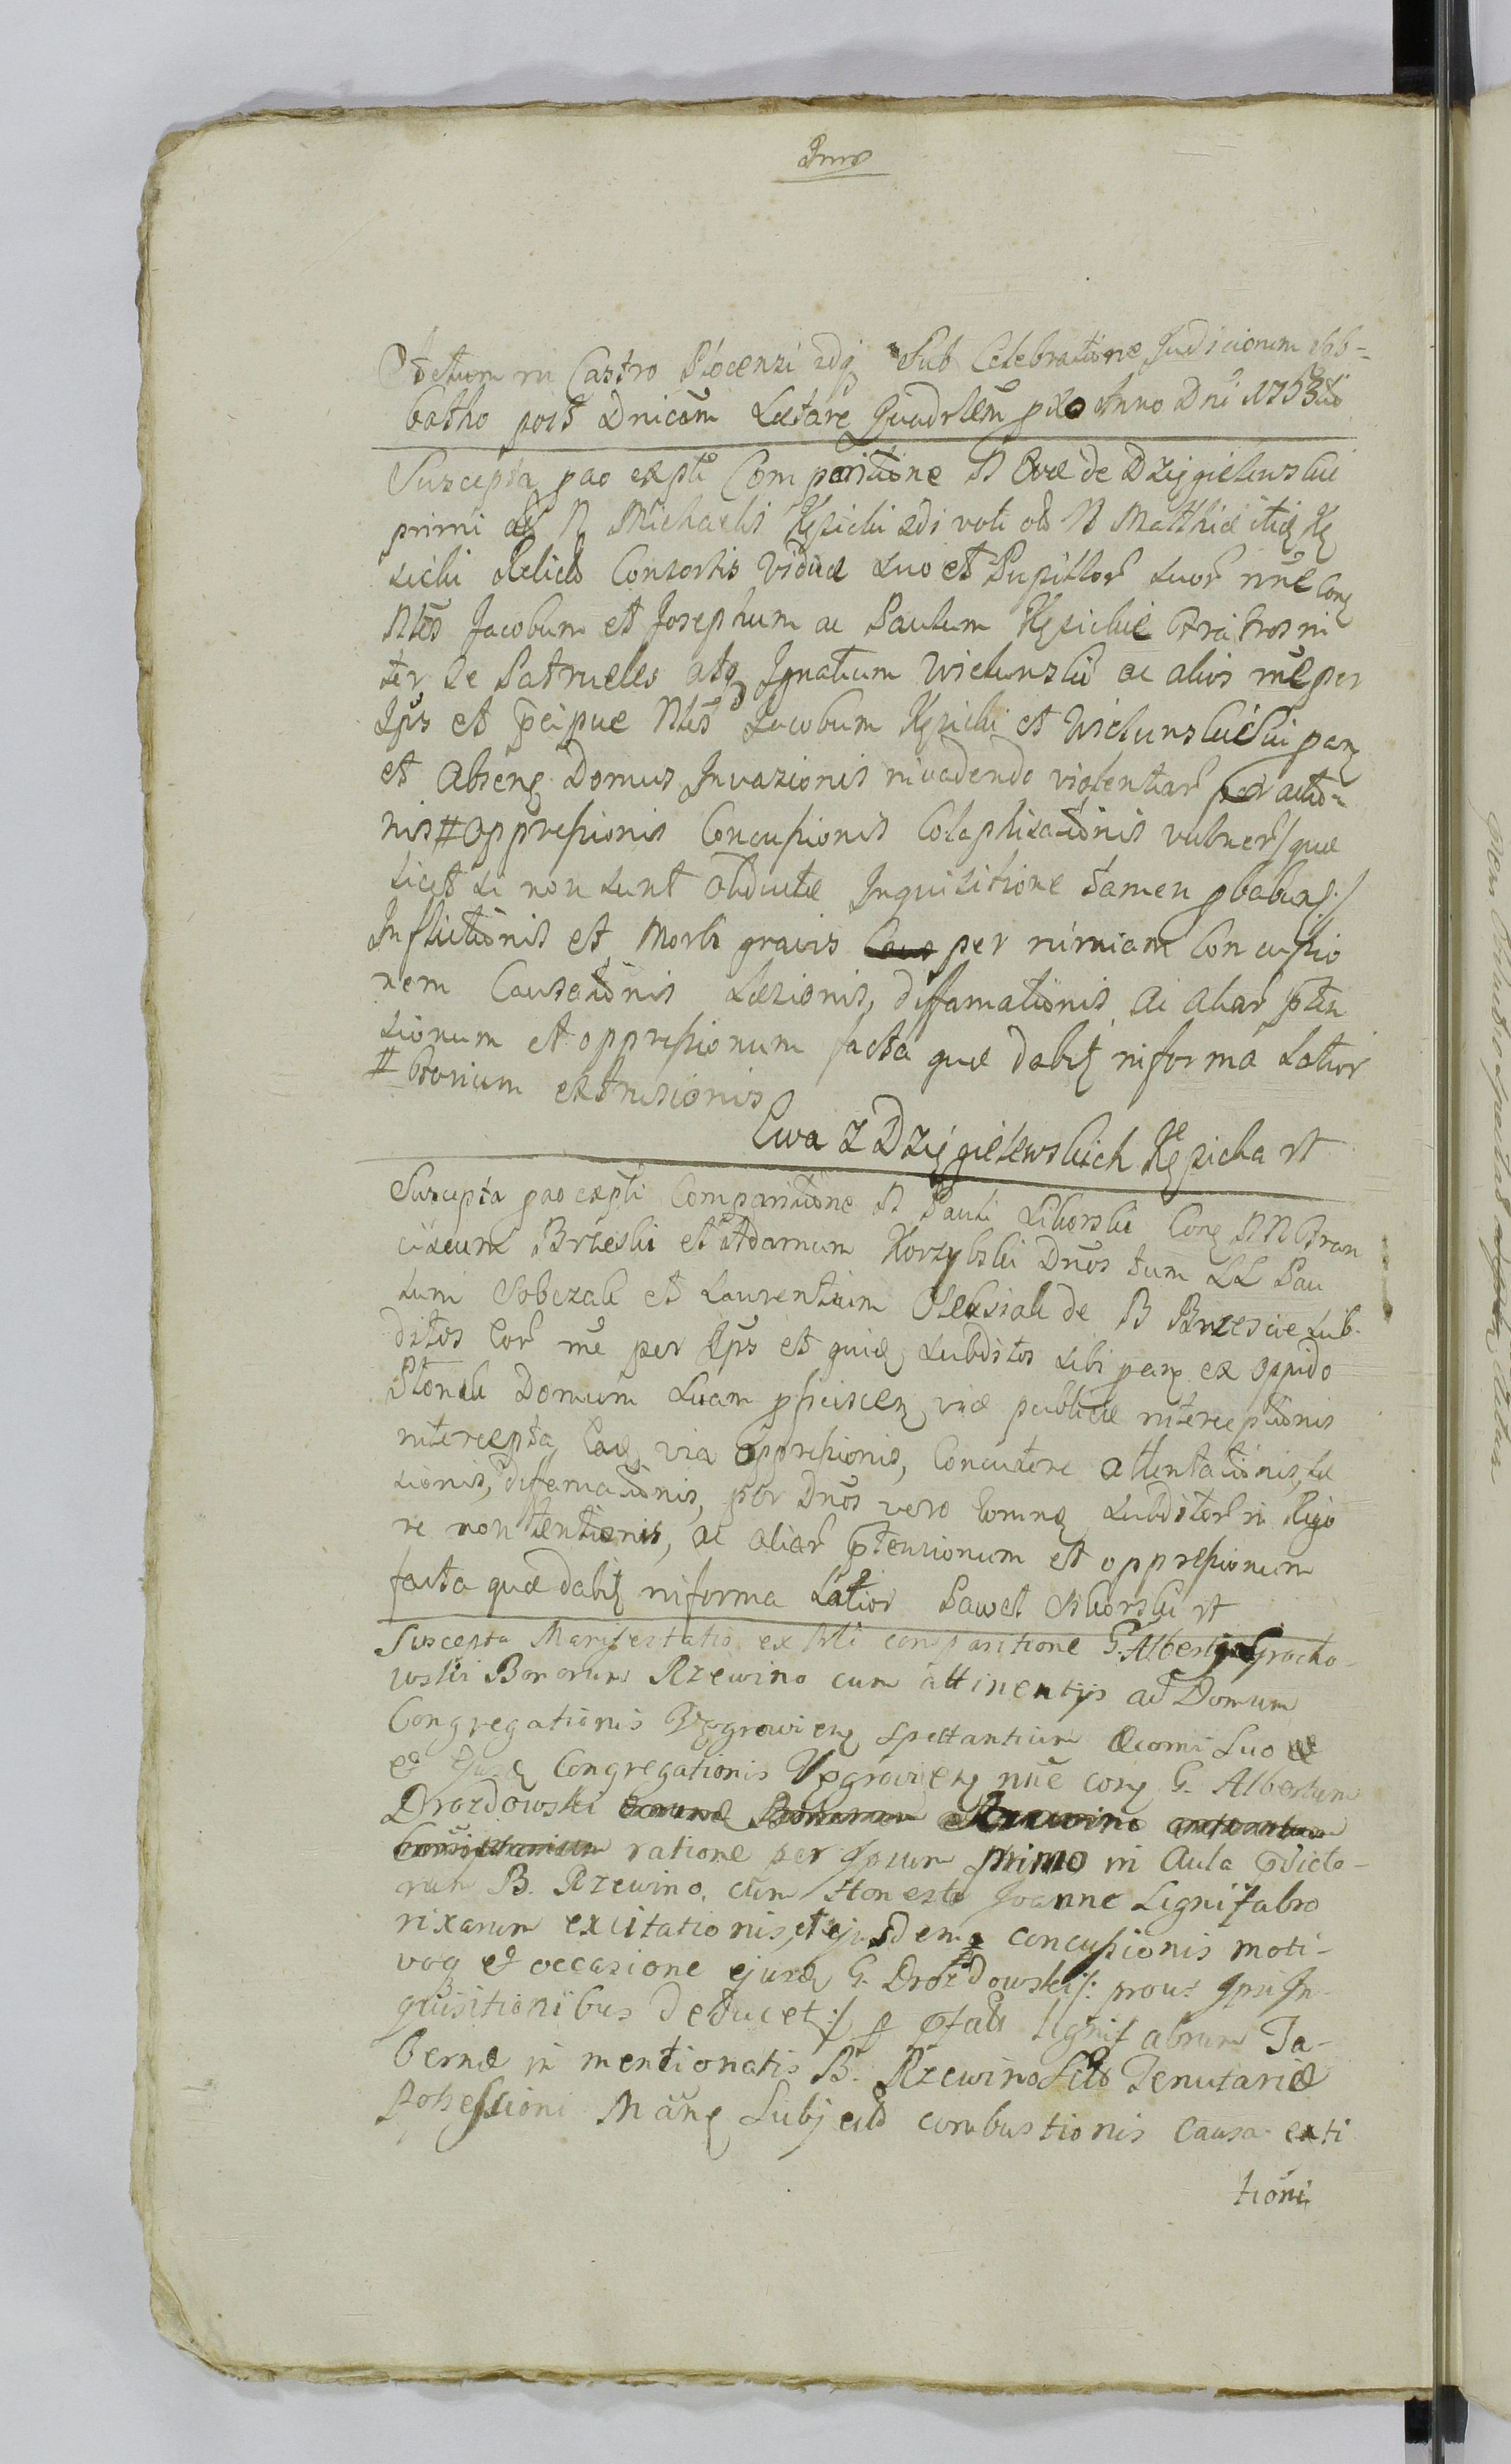 Actum in Castro Plocensi idq Sub Celebratione Judiciorum Sab=
batho post Dnicam Lætare Quadrlem pxo Anno Dni 1753tio
Suscepta pao expti Comparitione N Evæ de Dzięgielewskie
primi N Michaelis Kęsicki 2di voti olim N Matthiæ itid Kę
sicki Relictæ Consortis Viduæ suo et Pupillor suor nñe Con
Nles Jacobum et Josephum ac Paulum Kęsickie Fratres in
ter se Patrueles atq Ignatium Wielunski ac alios rñe per
Ips et pcipue Nles Jacobum Kęsicki et Wielunski sui pan
et Absen Domus Invasionis invadendo violentiar per actio=
nis # oppressionis Concussionis Colaphisationis vulner /: quæ
licet si non sunt obducta Inquisitione tamen pbabun :/
Inflictionis et Morbi gravis per nimiam Concussio
nem Causationis Læsionis, diffamationis ac aliar pten
sionum et oppressionum facta quæ dabit informa Latior
# Granium extrusionis
Ewa z Dzięgielewskich Kęsicka rt
Suscepta pao expti Comparitione N Pauli Sikorski Con NN Fran
ciscum Brzeski et Adamum Korzybski Dnos tum LL Pau
lum Sobczak et Laurentium Oleksiak de B Brzescie Sub-
ditos Eor rñe per Ips et quid subditos sibi pan ex Oppido
Plonsk Domum suam pficiscen viæ publicæ interceptionis
intercepta Ead via Oppressionis, Concutere attentationis, Læ
sionis, diffamationis, per Dnos vero Eorund subditor in Rigo
re non tentionis, ac aliar ptensionum et oppressionum
facta quæ dabit informa Latior Paweł Sikorski rt
Suscepta Manifestatio ex plti comparitione G. Alberti Grocho-
wski Bonorum Rzewino cum attinentijs ad Domum
Congregationis Węgrowien spectantium Œconi Suo
et Ejusd Congregationis Vęgrowien nñe con G. Albertum
Drozdowski
ratione per Ipsum primo in Aula pdicto-
rum B. Rzewino, cum Honesto Joanne Lignifabro
rixarum excitationis, et ejusdem concussionis moti-
voq et occasione ejusd G. Drozdowski /: prout Ipsi In-
quisitionibus deducet :/ p pfatu lignifabrum Ta-
bernæ in mentionatis B. Rzewino Sitæ Tenutariæ
Possessioni Man Subjectæ combustionis causa exti
tioni